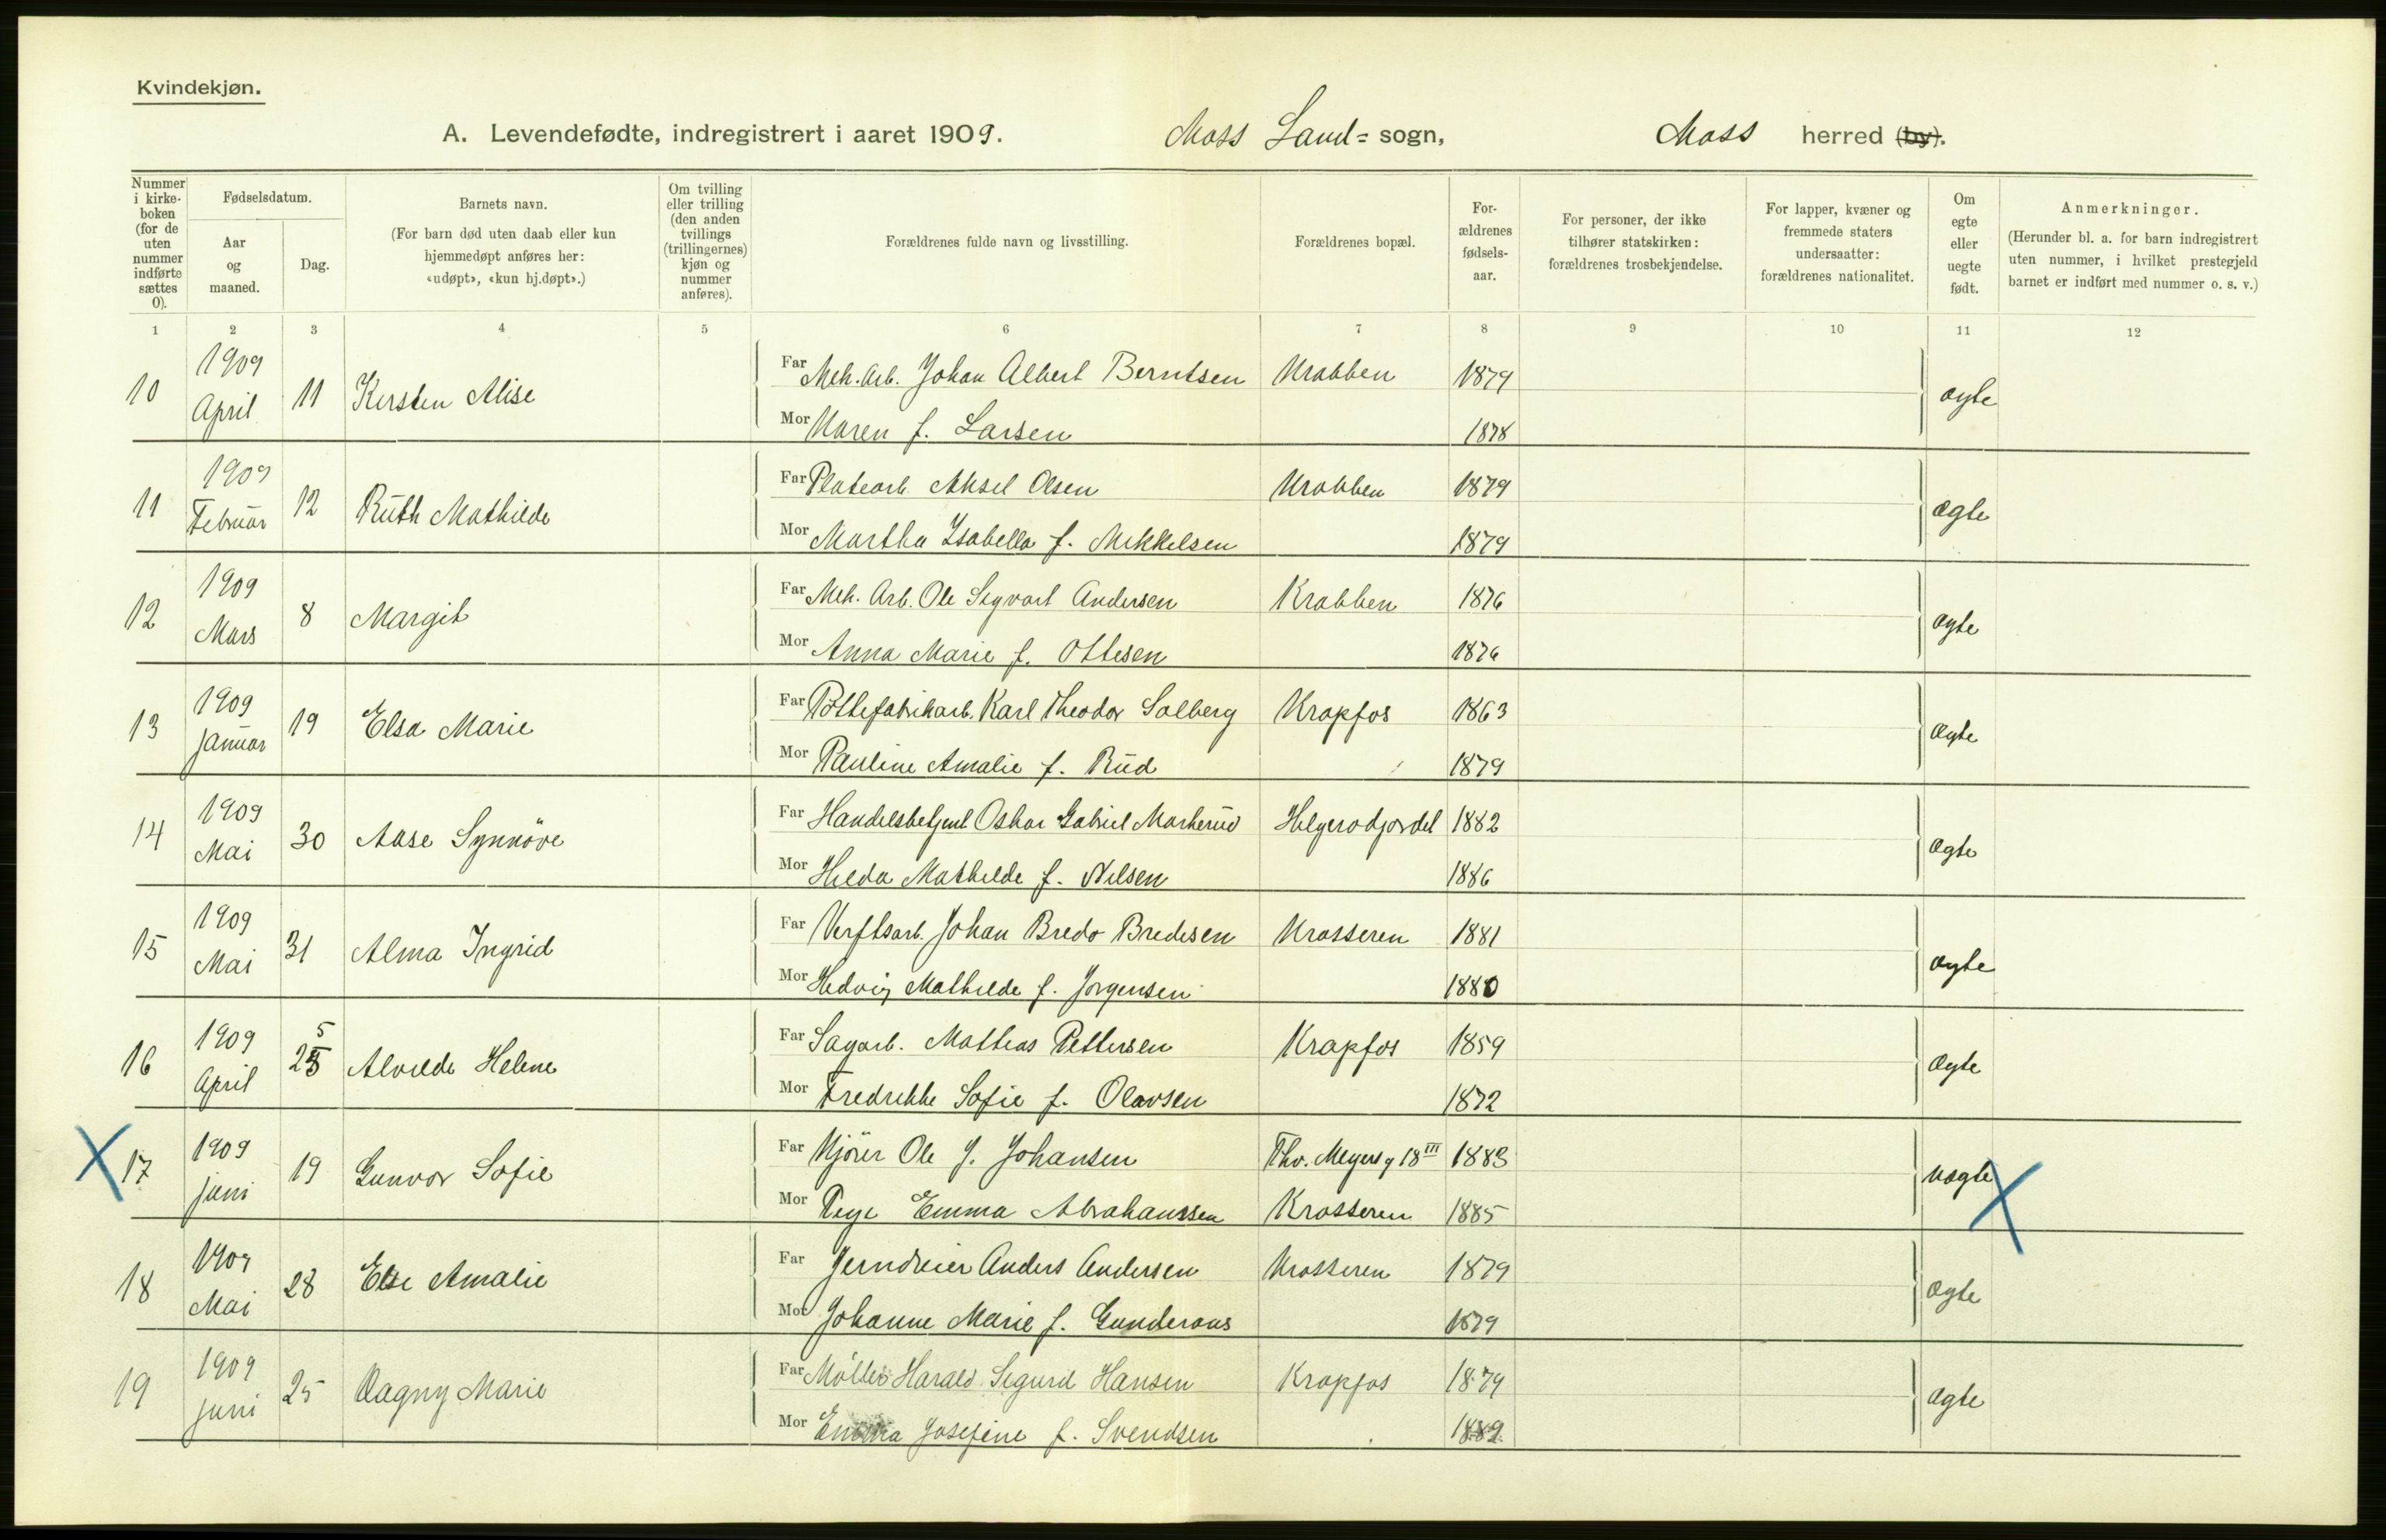 Kvindekjøn.
A. Levendefødte, indregistrert i aaret 1909. Moss Land= sogn, Moss herred (by).
Nummer i kirkeboken (for de uten nummer indførte sættes 0).
Fødselsdatum.
Aar og maaned.
Dag.
Barnets navn.
(For barn død uten daab eller kun hjemmedøpt anføres her: «udøpt», «kun hj.døpt».)
Om tvilling eller trilling (den anden tvillings (trillingernes) kjøn og nummer anføres).
Forældrenes fulde navn og livsstilling.
Forældrenes bopæl.
Forældrenes fødselsaar.
For personer, der ikke tilhører statskirken: forældrenes trosbekjendelse.
For lapper, kvæner og fremmede staters undersaatter: forældrenes nationalitet.
Om egte eller uegte født.
Anmerkninger.
(Herunder bl. a. for barn indregistrert uten nummer, i hvilket prestegjeld barnet er indført med nummer o. s. v.)
1 2 3 4 5 6 7 8 9 10 11 12
10 1909 April 11 Kirsten Alise Far Mek. Arb. Johan Albert Berntsen Krabben 1879 ægte
Mor Maren f. Larsen 1878
11 1909 Februar 12 Ruth Mathilde Far Platearb. Aksel Olsen Krabben 1879 ægte
Mor Martha Isabella f. Mikkelsen 1879
12 1909 Mars 8 Margit Far Mek. Arb. Ole Sigvart Andersen Krabben 1876 ægte
Mor Anna Marie f. Ottesen 1876
13 1909 Januar 19 Elsa Marie Far Pottefabrikarb. Karl Theodor Solberg Krapfos 1863 ægte
Mor Pauline Amalie f. Rud 1879
14 1909 Mai 30 Aase Synnöve Far Handelsbetjent Oskar Gabriel Markerud Helgerødjordet 1882 ægte
Mor Hilda Mathilde f. Nilsen 1886
15 1909 Mai 31 Alma Ingrid Far Verftsarb. Johan Bredo Bredesen Krosseren 1881 ægte
Mor Hedvig Mathilde f. Jörgensen 1880
16 1909 April 25 Alvilde Helene Far Sagarb. Mathias Pettersen Krapfos 1859 ægte
Mor Fredrikke Sofie f. Olavsen 1872
17 1909 Juni 19 Gunvor Sofie Far Kjörer Ole J. Johansen Thv. Meyersg 18 III 1883 uægte
Mor Pige Emma Abrahamssen Krosseren 1885
18 1909 Mai 28 Else Amalie Far Jerndreier Anders Andersen Krosseren 1879 ægte
Mor Johanne Marie f. Gundersen 1879
19 1909 Juni 25 Dagny Marie Far Möller Harald Sigurd Hansen Krapfos 1879 ægte
Mor Emma Josefine f. Svendsen 1889